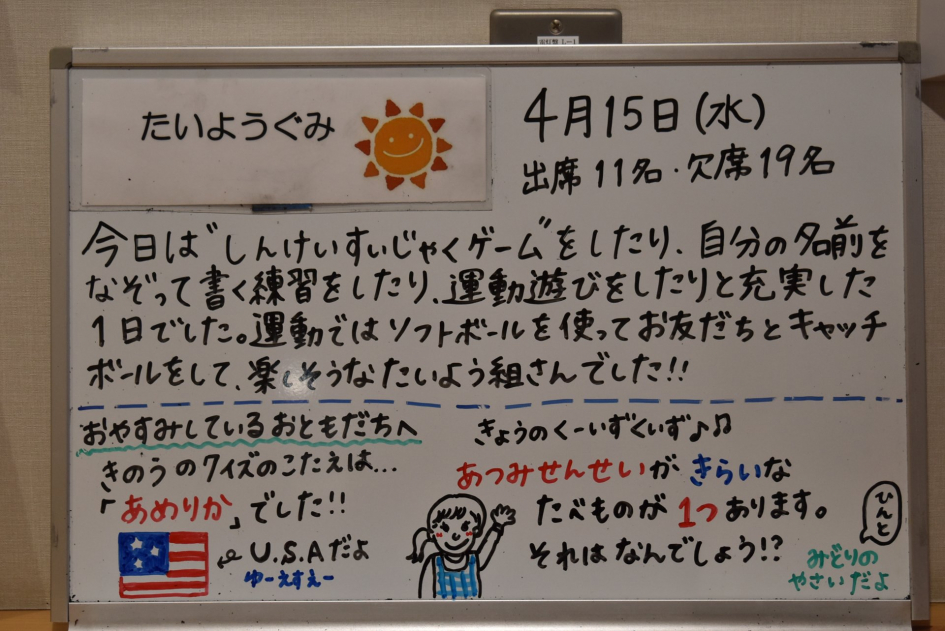 たいようぐみ
4月15日(水)
出席 11名・欠席19名
今日は"しんけいすいじゃくゲーム"をしたり、自分の名前を
なぞって書く練習をしたり、運動遊びをしたりと充実した
1日でした。運動ではソフトボールを使ってお友だちとキャッチ
ボールをして、楽しそうなたいよう組さんでした!!
おやすみしているおともだちへ
きのうのクイズのこたえは...
「あめりか」でした!!
U.S.Aだよ
ゆーえすえー
きょうのくーいずくいず♪♫
あつみせんせいがきらいな
たべものが1つあります。
それはなんでしょう!?
ひんと
みどりの
やさいだよ